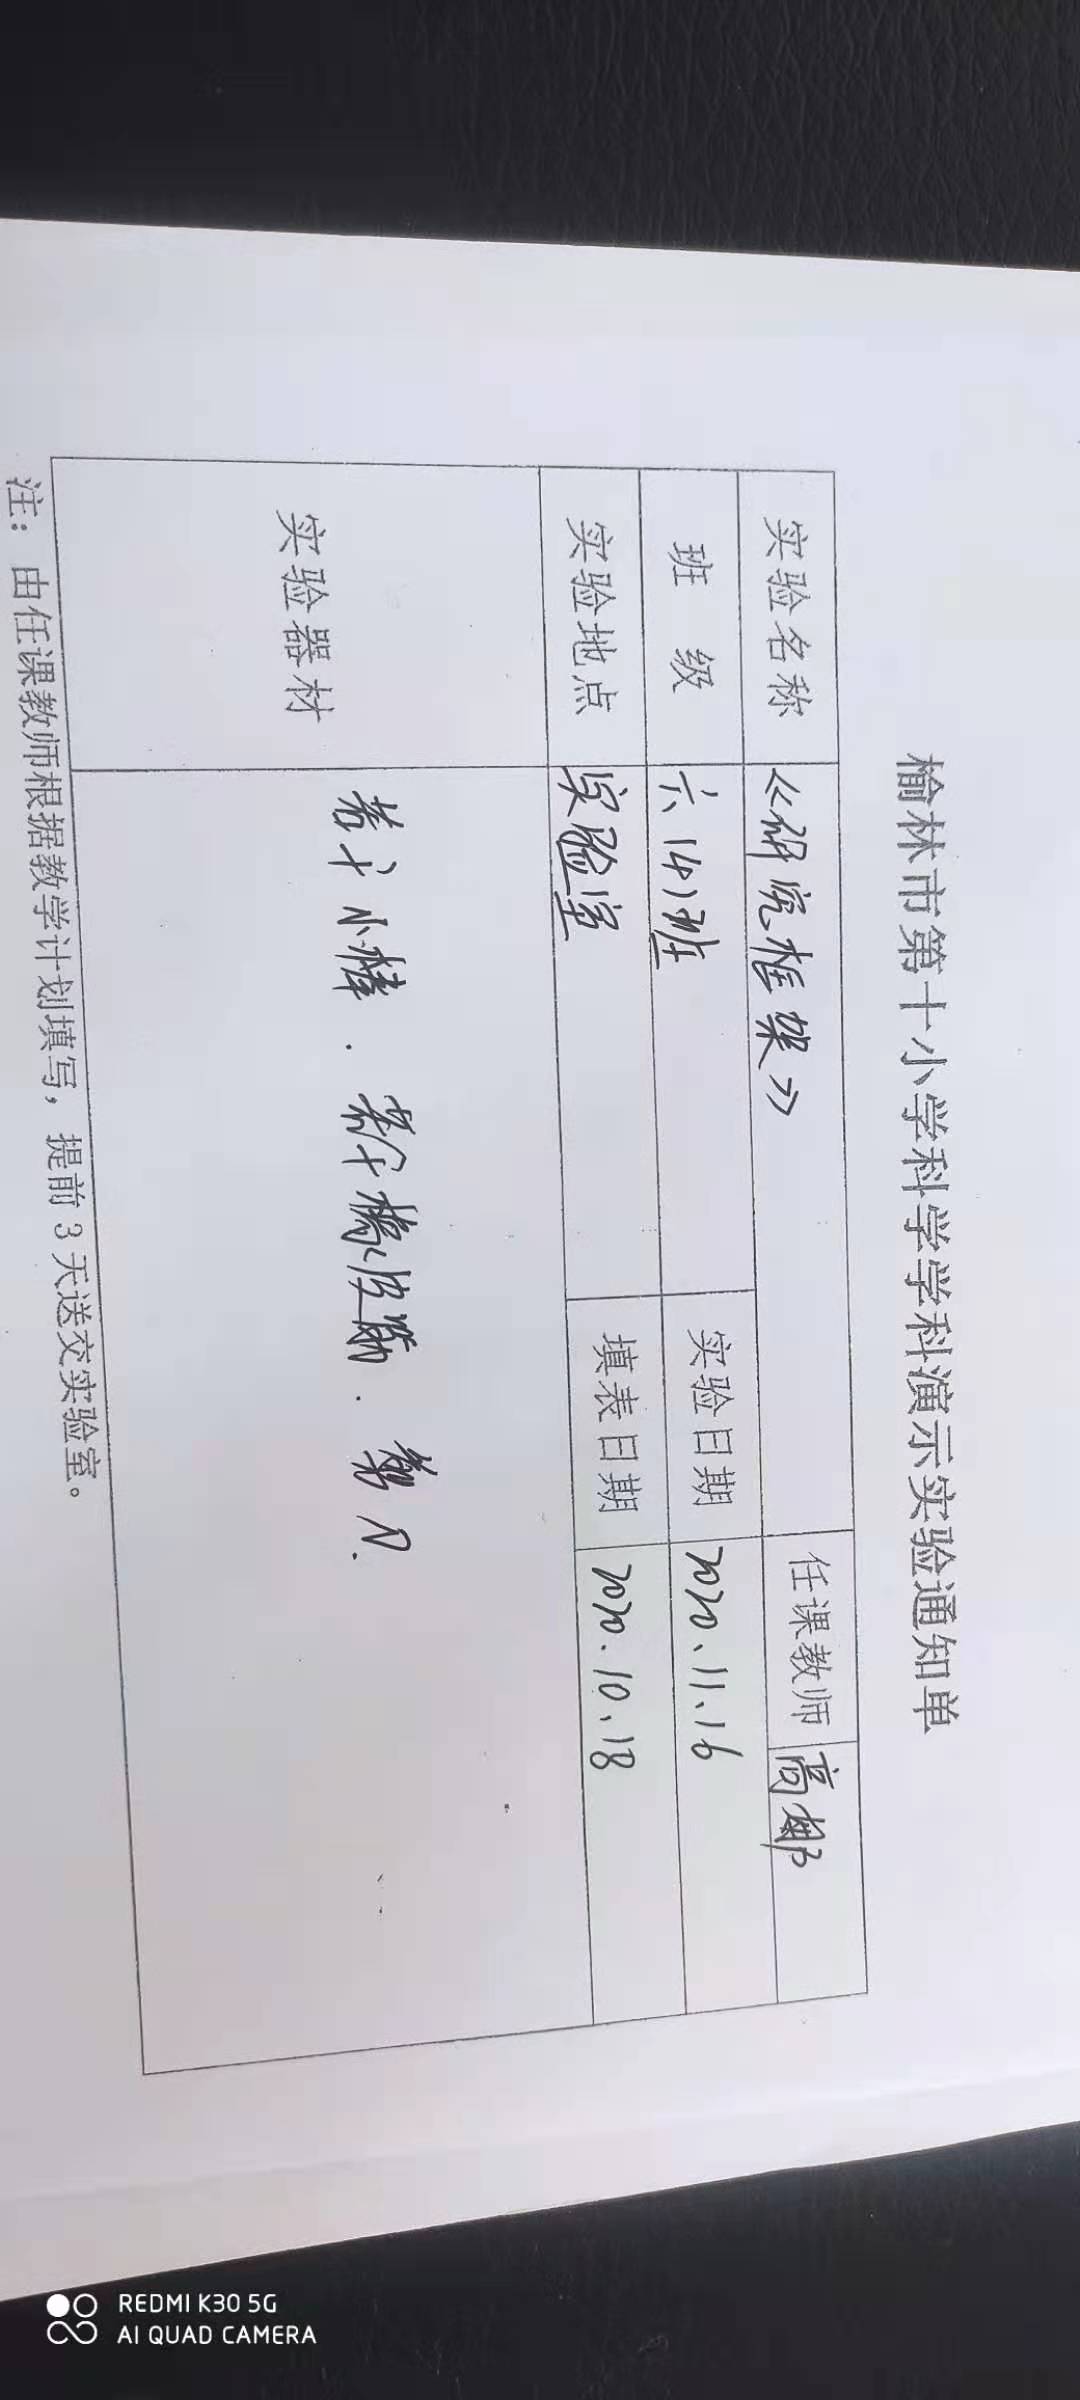 榆林市第十小学科学学科演示实验通知单
实验名称 《研究框架》 任课教师 高娜
班 级 六(4)班 实验日期 2020、11、16
实验地点 实验室 填表日期 2020.10、18
实验器材 若干小棒．若干橡皮筋．剪刀．
注：由任课教师根据教学计划填写，提前3天送交实验室。
REDMI K30 5G
AI QUAD CAMERA